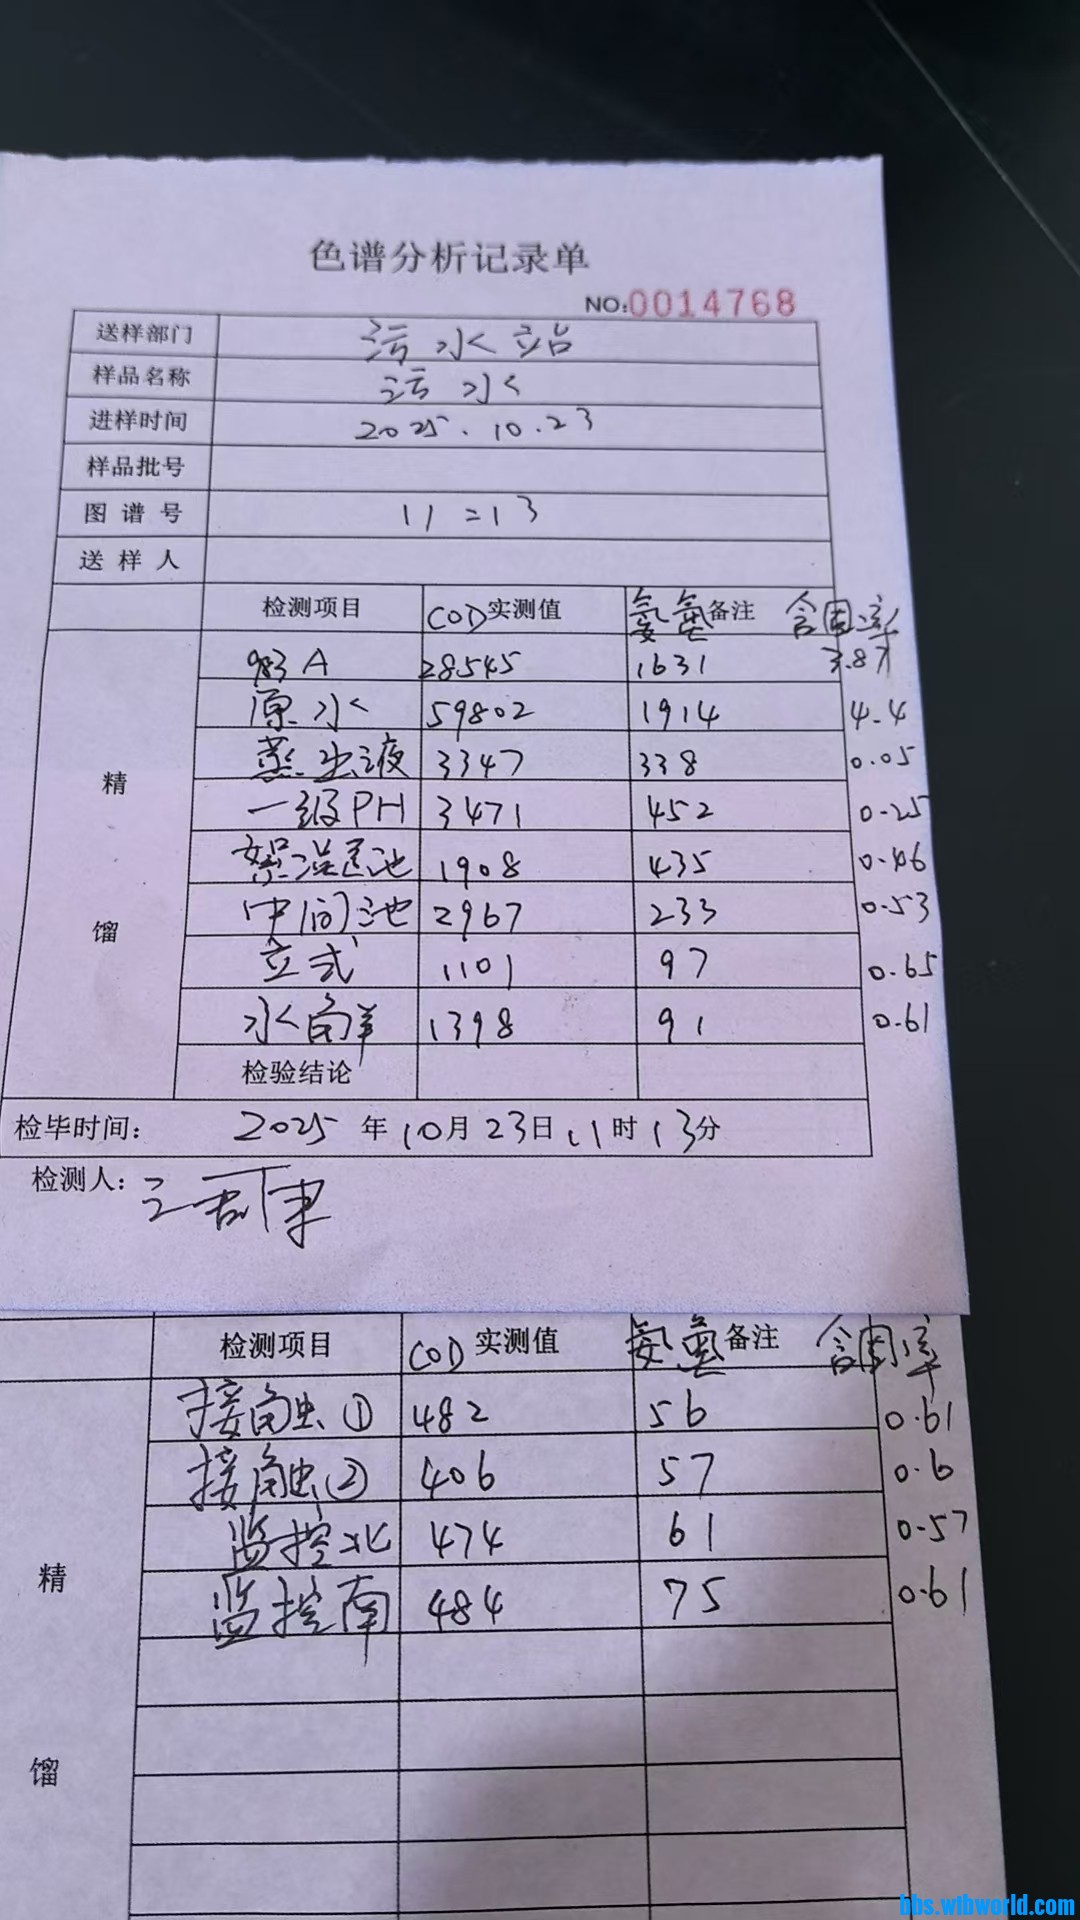 色谱分析记录单
NO:0014768
送样部门 污水站
样品名称 污水
进样时间 2025.10.23
样品批号
图谱号 11=13
送样人
检测项目 COD实测值 氨氮备注 含固率
983A 28545 1631 3.87
原水 59802 1914 4.4
蒸出液 3347 338 0.05
一级PH 3471 452 0.25
絮混池 1908 435 0.46
中间池 2967 233 0.53
立式 1101 97 0.65
水解 1398 91 0.61
精
馏
检验结论
检毕时间: 2025年10月23日11时13分
检测人:
检测项目 COD实测值 氨氮备注 含固率
接触① 482 56 0.61
接触② 406 57 0.6
监控北 474 61 0.57
监控南 484 75 0.61
精
馏
bbs.wtbworld.com